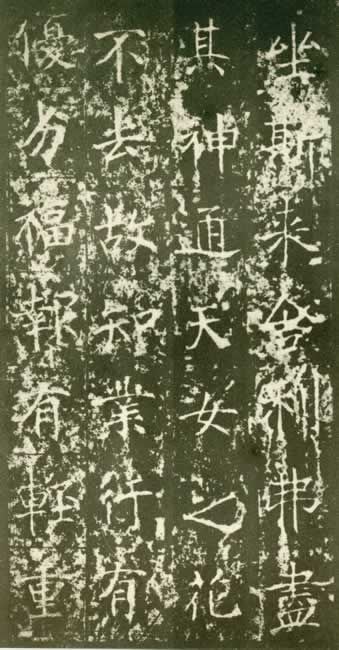 坐斯来舍利弗盡
其神通天女之花
不去故知業行有
優劣福報有輕重